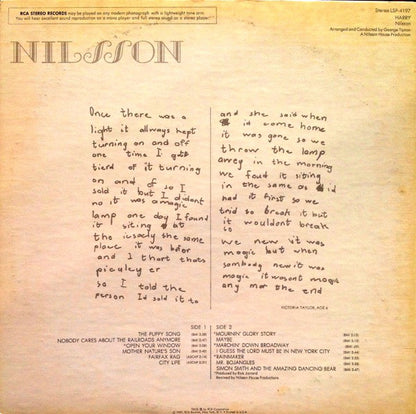 RCA STEREO RECORDS may be played on any modern phonograph with a lightweight tone arm.
You will hear excellent sound reproduction on a mono player and full stereo sound on a stereo player.
Stereo LSP-4197
HARRY
Nilsson
Arranged and Conducted by George Tipton
A Nilsson House Production
NILSSON
Once there was a
light it allways kept
turning on and off
one time I got
tierd of it turning
on and of so I
sold it but I didant
no it was magic
lamp one day I found
it siting at
the icsacly the same
place it was befor
and I thort thats
piculyer
so I told the
person I'd sold it to
and she said when
id come home
it was gone so we
throw the lamp
awey in the morning
we foud it siting
in the same as id
had it first so we
trid so break it but
it wouldent break
so
we new it was
magic but when
somebody new it was
magic it wasont magic
any mor the end
VICTORIA TAYLOR, AGE
SIDE 1
THE PUPPY SONG
NOBODY CARES ABOUT THE RAILROADS ANYMORE
*OPEN YOUR WINDOW
MOTHER NATURE'S SON
FAIRFAX RAG
CITY LIFE
SIDE 2
*MOURNIN' GLORY STORY
MAYBE
*MARCHIN' DOWN BROADWAY
I GUESS THE LORD MUST BE IN NEW YORK CITY
*RAINMAKER
MR. BOJANGLES
SIMON SMITH AND THE AMAZING DANCING BEAR
*Produced by Rick Jarrard
Remixed by Nilsson House Productions